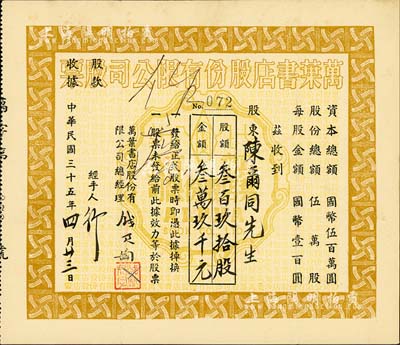 萬葉書店股份有限公司股款
No. 072
資本總額 國幣伍百萬圓
股份總額 伍萬股
每股金額 國幣壹百圓
茲收到
股東 陳爾同先生
股額 叁百玖拾股
金額 叁萬玖千元
一發給正式股票時即憑此據掉換
一股票未發給前此據效力等於股票
萬葉書店股份有
限公司總經理
經手人
中華民國三十五年四月廿三日
股款
收據